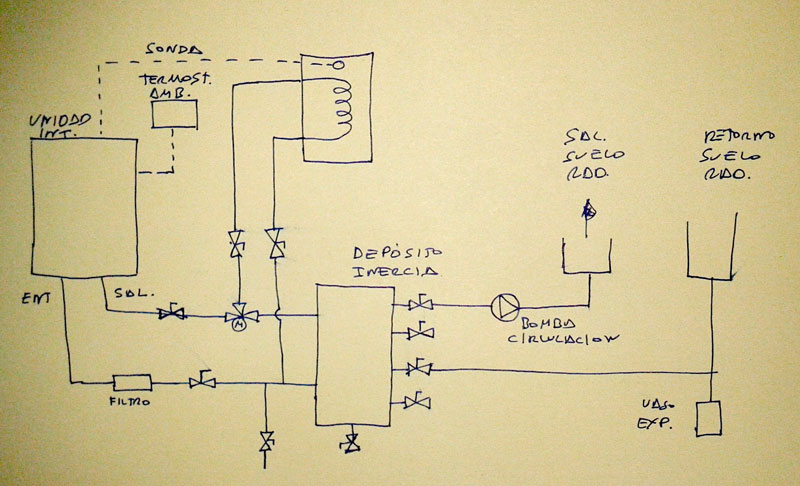 SONDA
TERMOST.
AMB.
UNIDAD
INT.
SAL.
SUELO
RAD.
RETORNO
SUELO
RAD.
DEPÓSITO
INERCIA
ENT
SAL.
M
BOMBA
CIRCULACION
FILTRO
VASO
EXP.